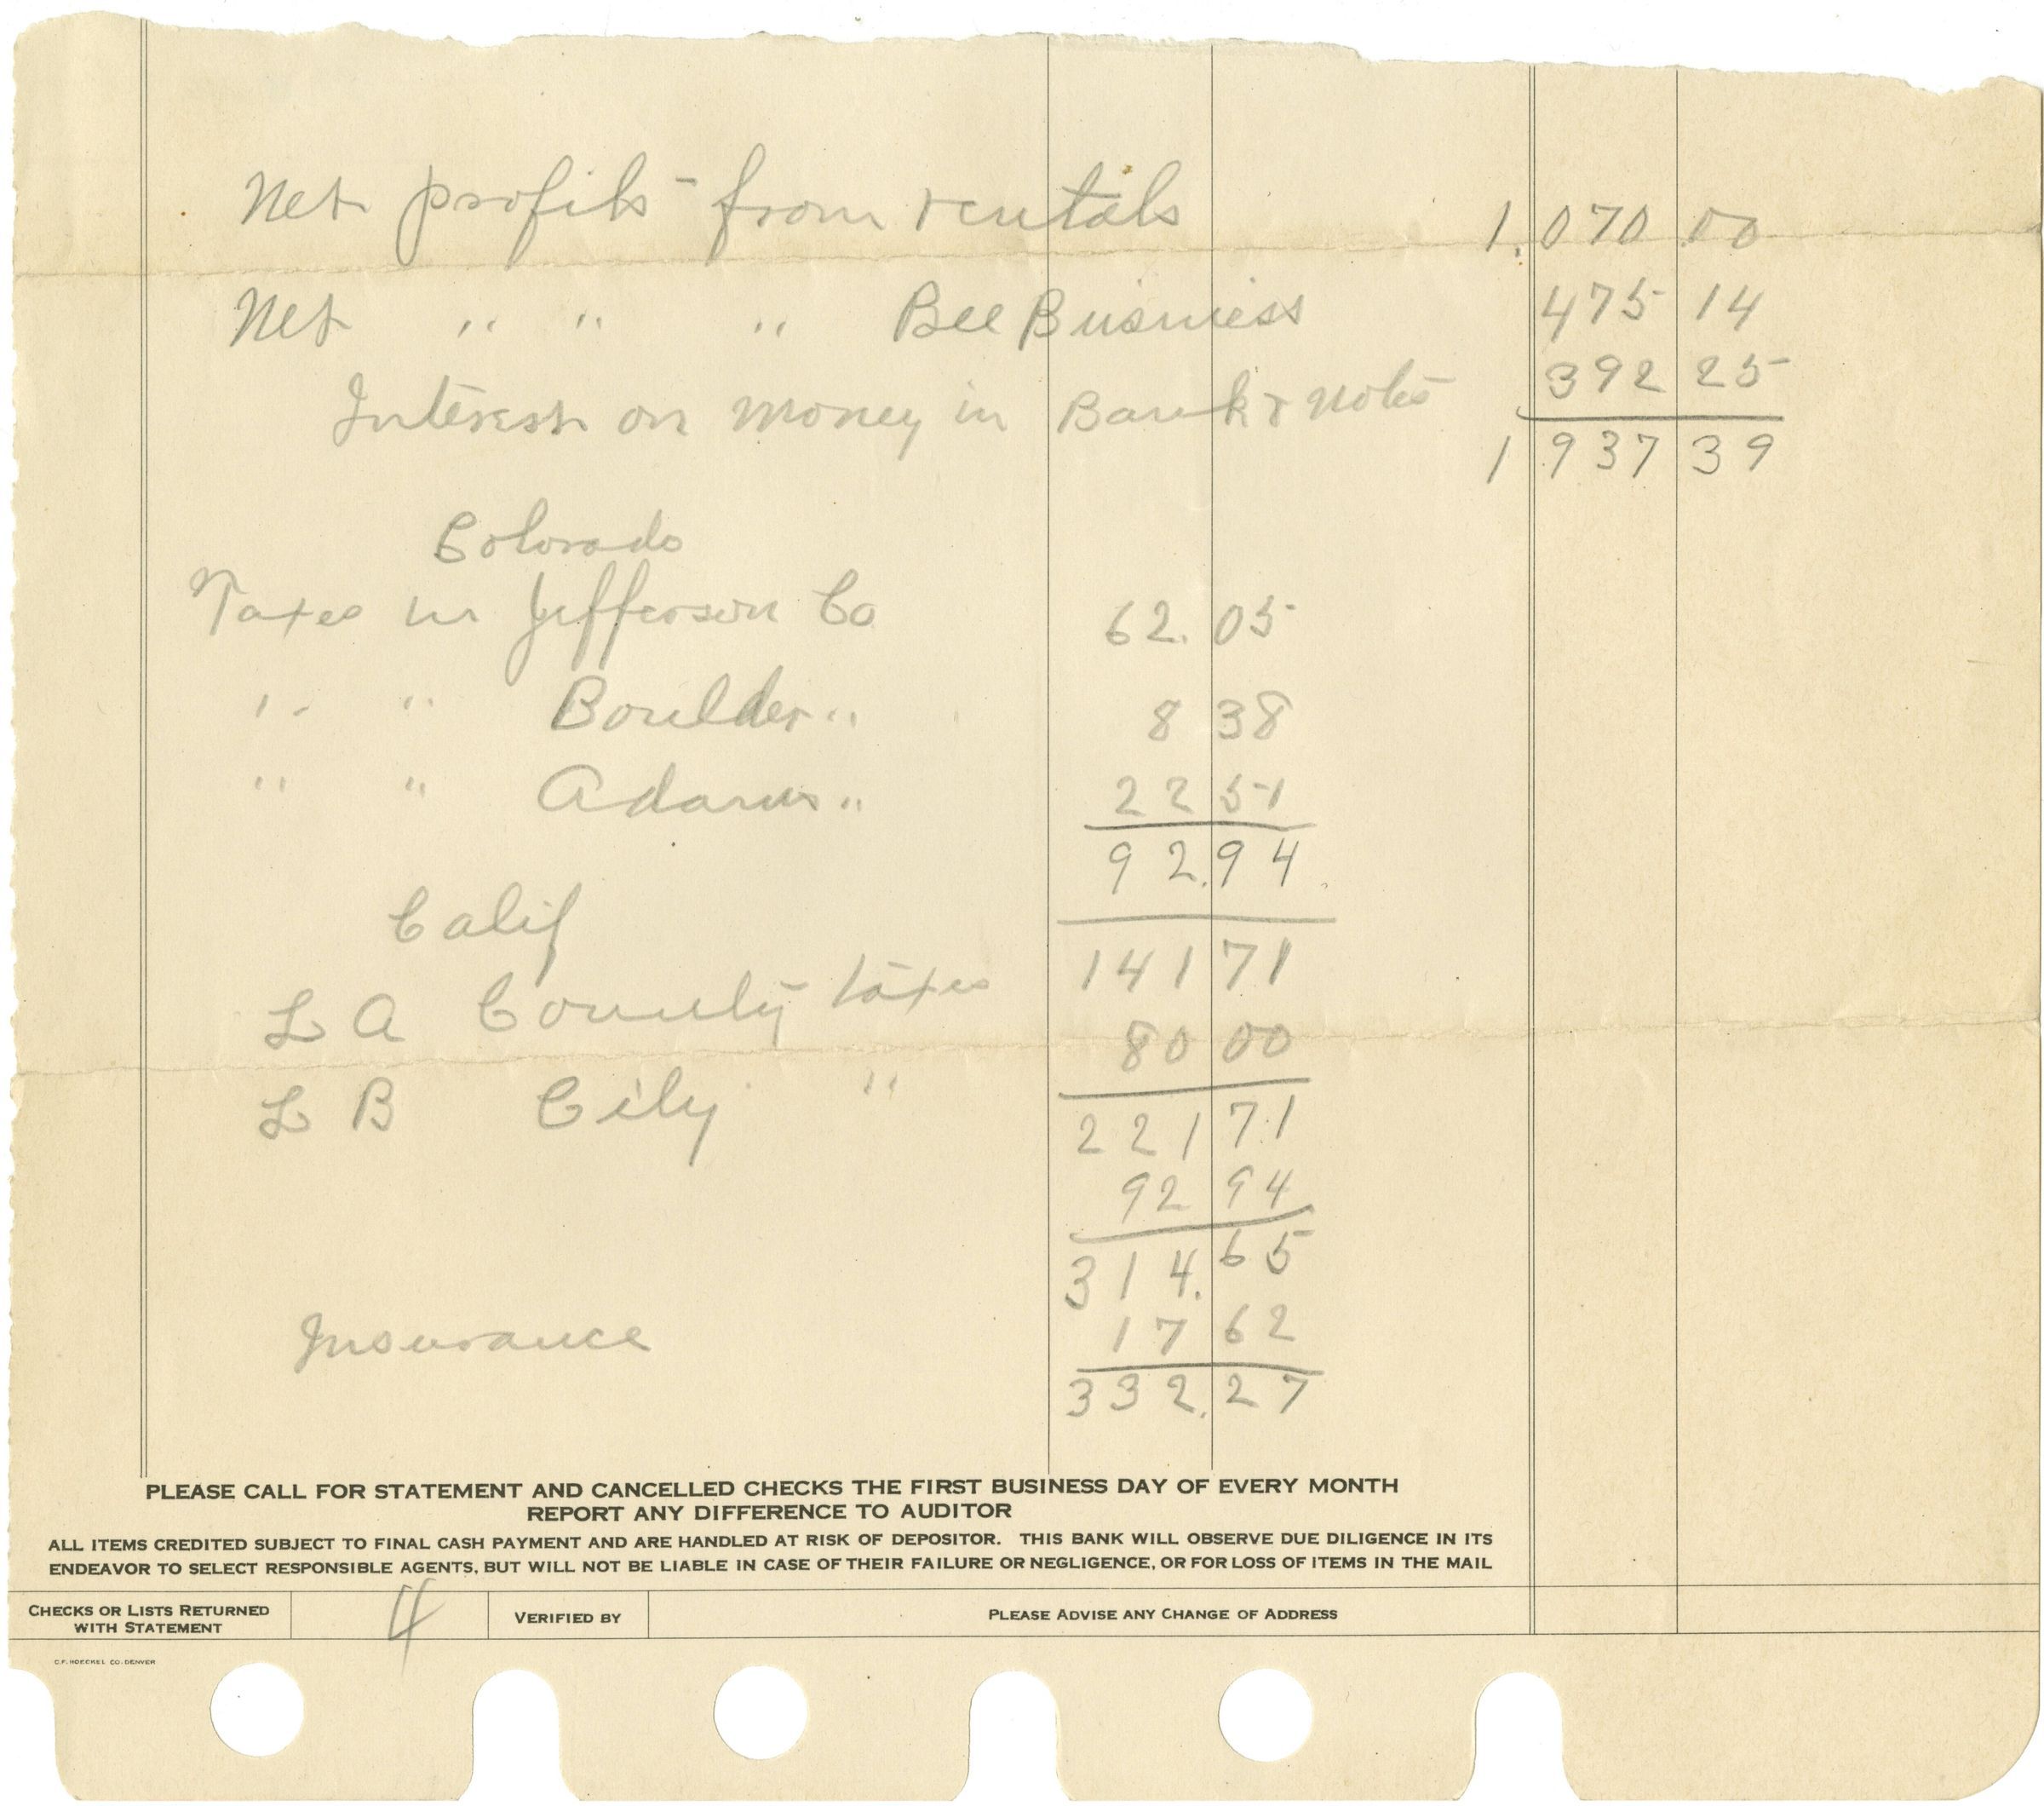 Net profits from rentals 1,070.00
Net " " " Bee Business 475 14
Interest on money in Bank & notes 392 25
1 937 39
Colorado
Taxes in Jefferson Co 62.05
" " Boulder " 8 38
" " Adams " 22 51
92.94
Calif
L A County taxes 141 71
L B City " 80 00
221 71
92 94
314.65
Insurance 17 62
332.27
PLEASE CALL FOR STATEMENT AND CANCELLED CHECKS THE FIRST BUSINESS DAY OF EVERY MONTH
REPORT ANY DIFFERENCE TO AUDITOR
ALL ITEMS CREDITED SUBJECT TO FINAL CASH PAYMENT AND ARE HANDLED AT RISK OF DEPOSITOR. THIS BANK WILL OBSERVE DUE DILIGENCE IN ITS
ENDEAVOR TO SELECT RESPONSIBLE AGENTS, BUT WILL NOT BE LIABLE IN CASE OF THEIR FAILURE OR NEGLIGENCE, OR FOR LOSS OF ITEMS IN THE MAIL
CHECKS OR LISTS RETURNED
WITH STATEMENT 4 VERIFIED BY PLEASE ADVISE ANY CHANGE OF ADDRESS
C.F. HOECKEL CO. DENVER